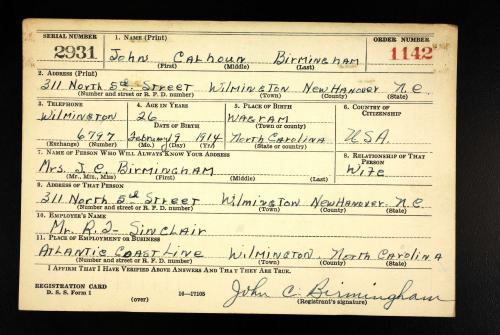 SERIAL NUMBER 1. NAME (Print) ORDER NUMBER
2931 JOHN CALHOUN BIRMINGHAM 1142
(First) (Middle) (Last)
2. ADDRESS (Print)
311 NORTH 5th STREET WILMINGTON NEW HANOVER N.C.
(Number and street or R. F. D. number) (Town) (County) (State)
3. TELEPHONE 4. AGE IN YEARS 5. PLACE OF BIRTH 6. COUNTRY OF CITIZENSHIP
WILMINGTON 26 WAGRAM
DATE OF BIRTH (Town or county)
6797 February 9 1914 NORTH CAROLINA USA.
(Exchange) (Number) (Mo.) (Day) (Yr.) (State or country)
7. NAME OF PERSON WHO WILL ALWAYS KNOW YOUR ADDRESS 8. RELATIONSHIP OF THAT PERSON
Mrs. J. C. BIRMINGHAM WIFE
(Mr., Mrs., Miss) (First) (Middle) (Last)
9. ADDRESS OF THAT PERSON
311 NORTH 5th STREET WILMINGTON NEW HANOVER. N.C
(Number and street or R. F. D. number) (Town) (County) (State)
10. EMPLOYER'S NAME
Mr. R.J. SINCLAIR
11. PLACE OF EMPLOYMENT OR BUSINESS
ATLANTIC COAST LINE WILMINGTON. NORTH CAROLINA
(Number and street or R. F. D. number) (Town) (County) (State)
I AFFIRM THAT I HAVE VERIFIED ABOVE ANSWERS AND THAT THEY ARE TRUE.
REGISTRATION CARD
D. S. S. Form 1 (over) 16—17105 John C. Birmingham
(Registrant's signature)